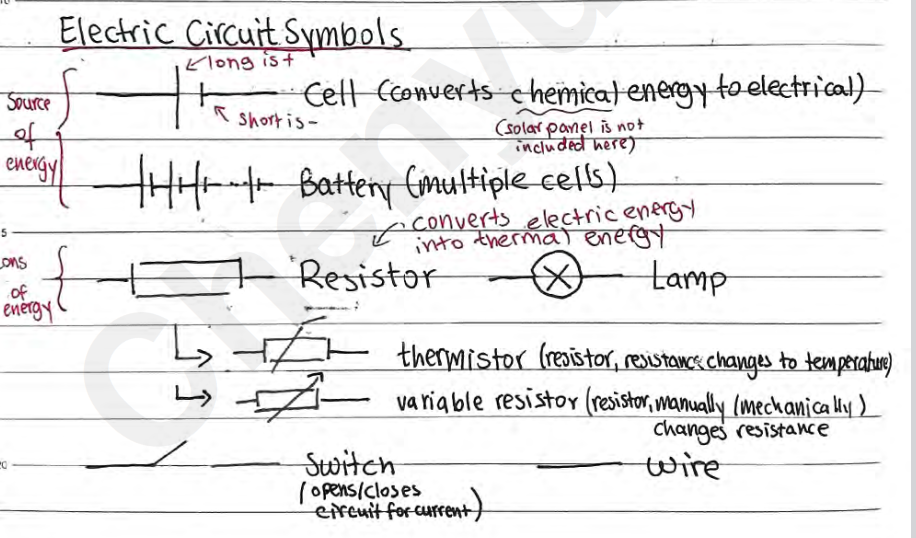 Electric Circuit Symbols
long is +
Cell (converts chemical energy to electrical)
short is -
(solar panel is not
included here)
Source
of
energy
Battery (multiple cells)
converts electric energy
into thermal energy
ons
of
energy
Resistor
Lamp
thermistor (resistor, resistance changes to temperature)
variable resistor (resistor, manually (mechanically)
changes resistance
Switch
(opens/closes
circuit for current)
wire
Cheny